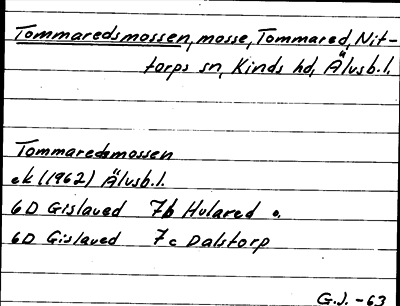 Tommaredsmossen, mosse, Tommared, Nit-
torps sn, Kinds hd, Älvsb.l.
Tommaredsmossen
ek (1962) Älvsb.l.
6D Gislaved 7b Hulared o.
6D Gislaved 7c Dalstorp
G.J. -63